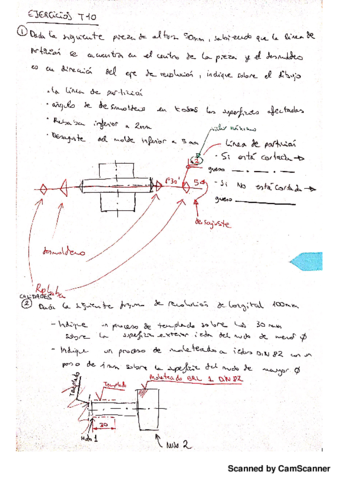 EJERCICIOS T10
① Dada la siguiente pieza de altura 50mm, sabiendo que la línea de
partición se encuentra en el centro de la pieza y el desmoldeo
es en dirección del eje de revolución, indique sobre el dibujo
· La línea de partición
· ángulo de desmoldeo en todas las superficies afectadas
· Rebaba inferior a 2mm
· Desajuste del molde inferior a 3mm
valor máximo
Línea de partición
- Si está cortada →
grueso
- Si No está cortada →
grueso
desajuste
desmoldeo
Rebaba
CALIDADES
② Dada la siguiente forma de revolución de longitud 100mm
- Indique un proceso de templado sobre los 30 mm
sobre la superficie exterior del nudo de menor Ø
- Indique un proceso de moleteado DIN 82 con un
paso de 1mm sobre la superficie del nudo de mayor Ø
Moleteado 1 DIN 82
Templado
Templado
30
Nudo 1
Nudo 2
Scanned by CamScanner